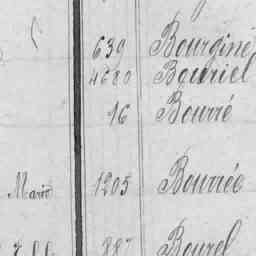 639 Bourginé
4680 Bouriel
16 Bourré
Marie 1205 Bourrée
887 Bourel